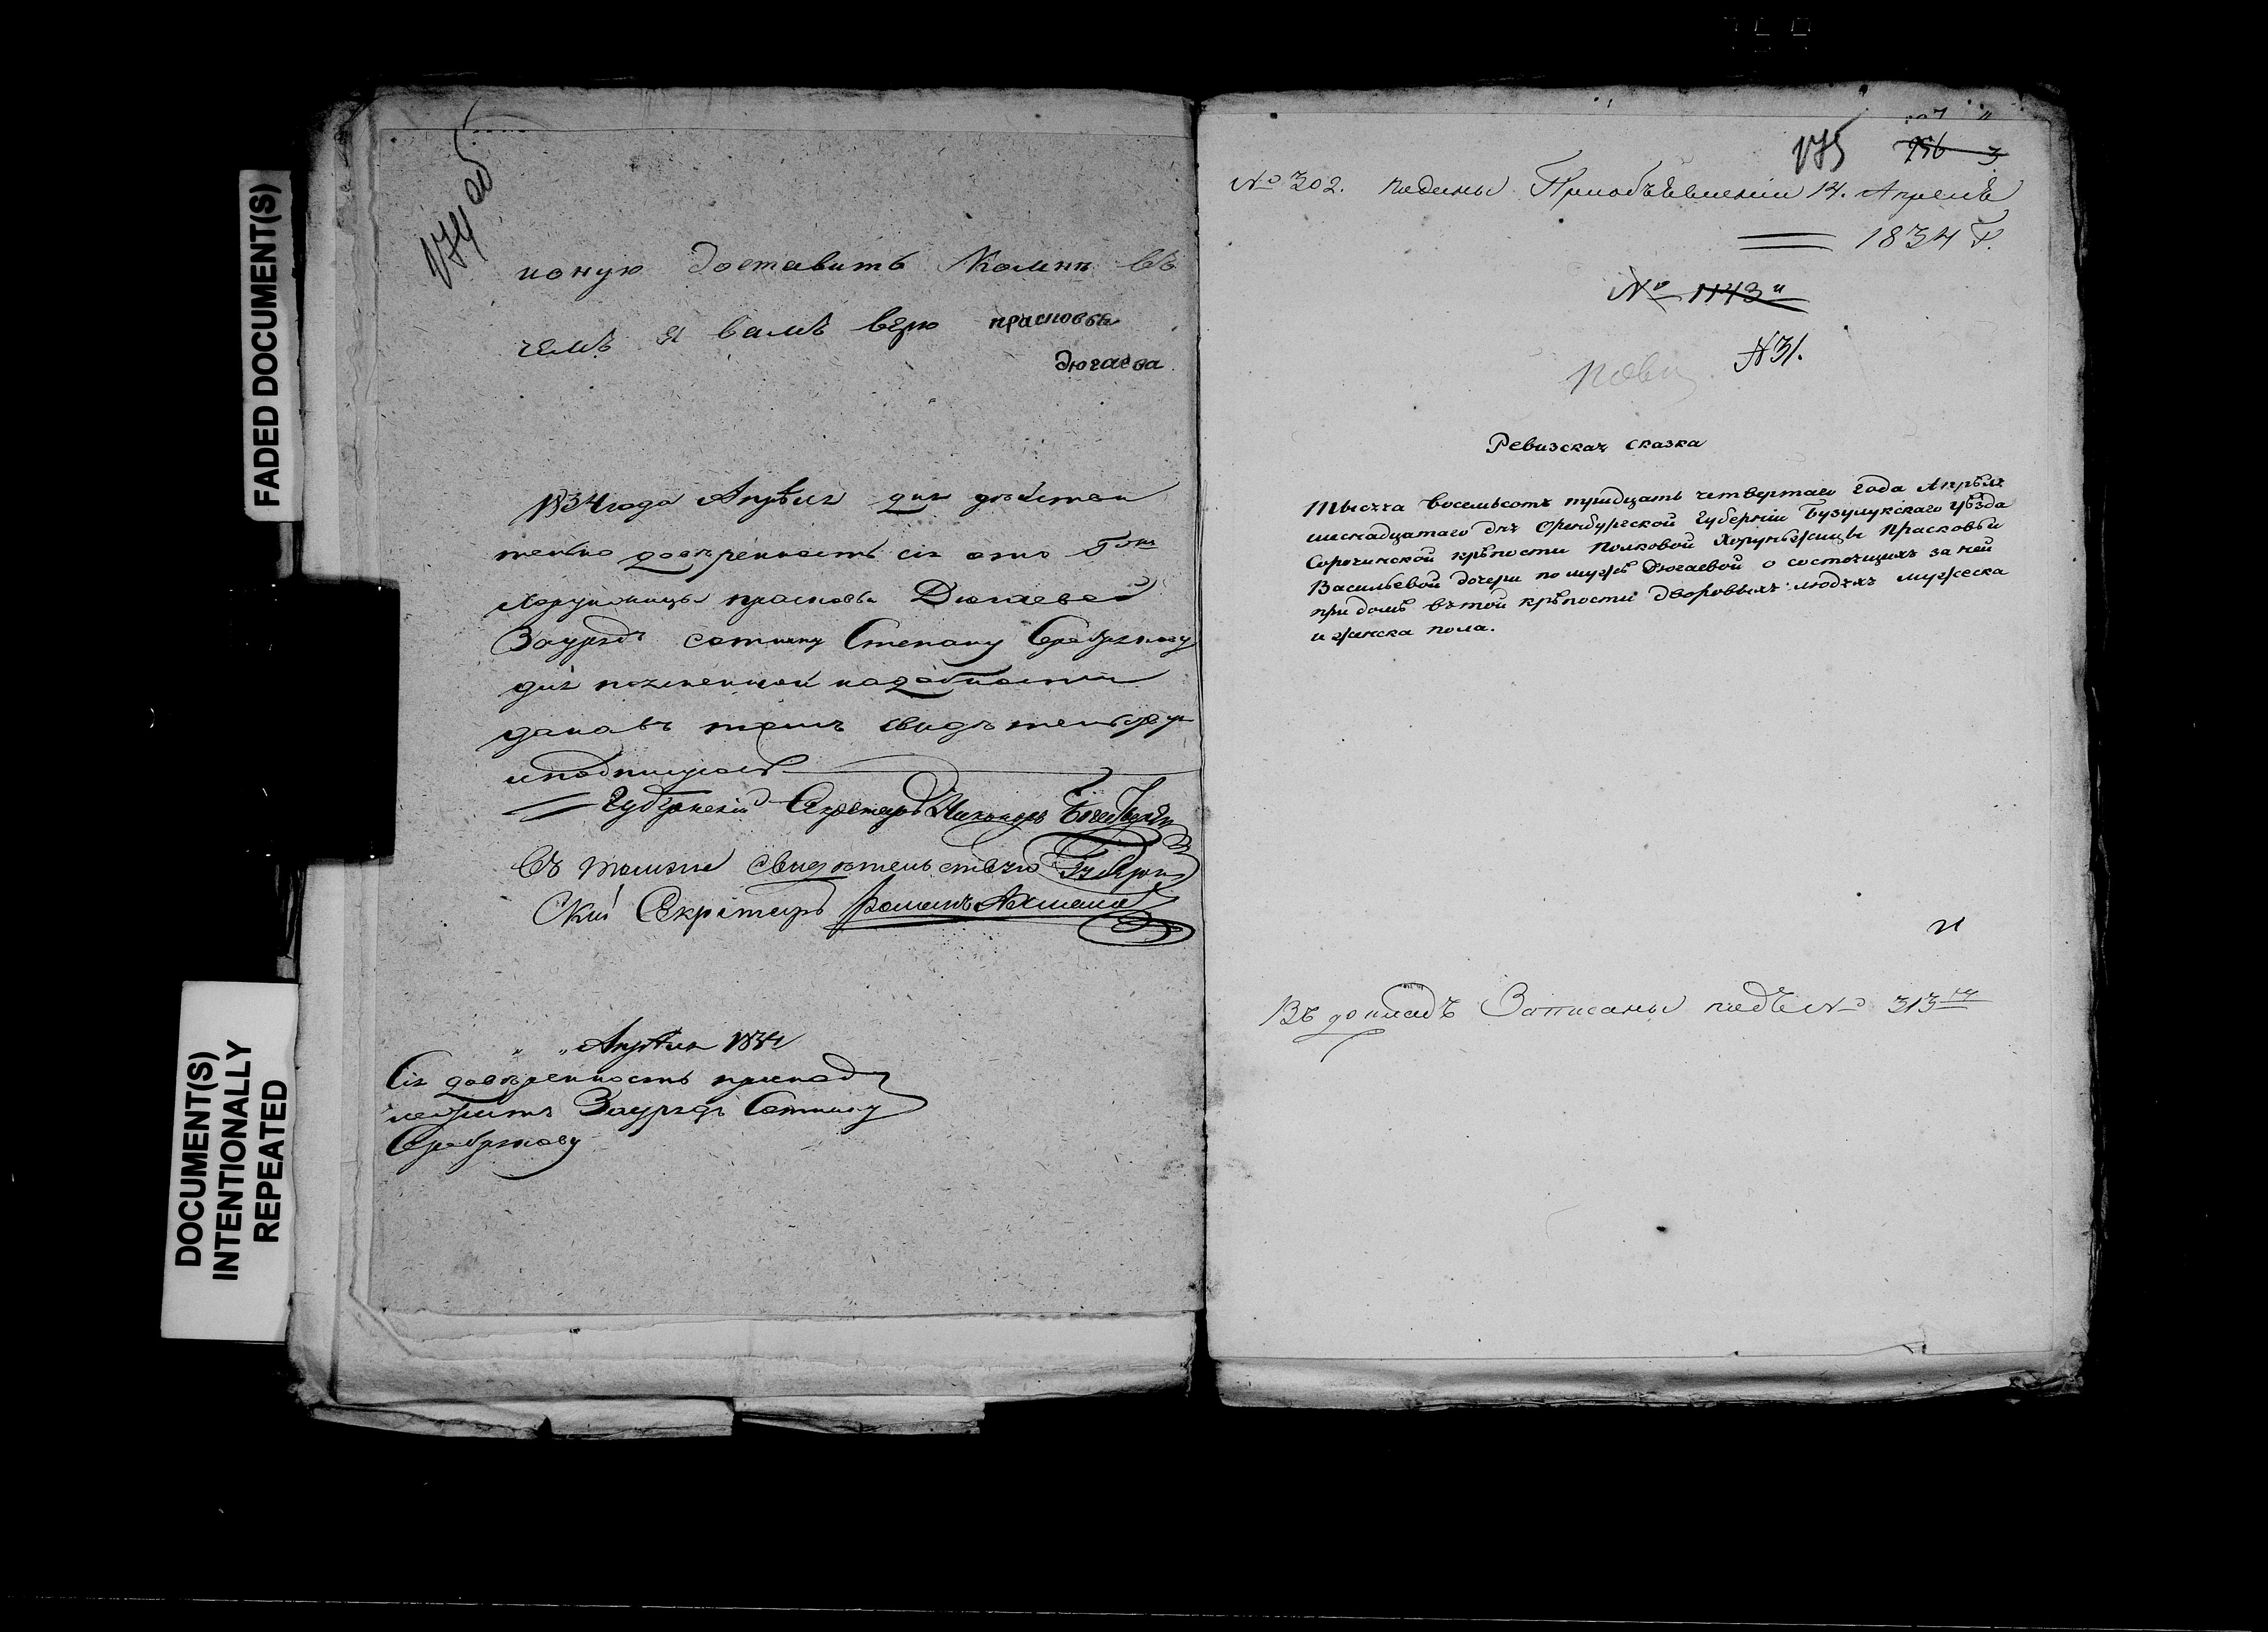 FADED DOCUMENT(S)
DOCUMENT(S)
INTENTIONALLY
REPEATED
174 об
коную доставить ко мнѣ въ
чемъ я вамъ верю прасковья
дюгаева
1834 года Апрѣля дня действи
тельно доверенность сія отъ Гжи
Хорунжицы прасковьи Дюгаевой
Зауряд сотнику Степану
для надобности
дана въ томъ свидетельствую
и подписуюсь
Губернский Секретарь
Въ томже свидетельствую Губерн
Ский Секретарь
Апрѣля 1834
Сія доверенность принад
лежитъ Зауряд Сотнику
175
956 3
№ 302. поданы При объявлении 14. Апреля
1834 г.
№ 1143
№ 31.
Ревизская сказка
Тысяча восемьсотъ тридцать четвертаго года Апрѣля
шеснадцатаго дня Оренбургской Губерніи Бузулукскаго уѣзда
Сорочинской крѣпости Полковой Хорунжицы Прасковьи
Васильевой дочери по мужѣ Дюгаевой о состоящихъ за ней
при домѣ въ той крѣпости дворовыхъ людяхъ мужеска
и женска пола.
Въ докладъ Записаны подъ № 313